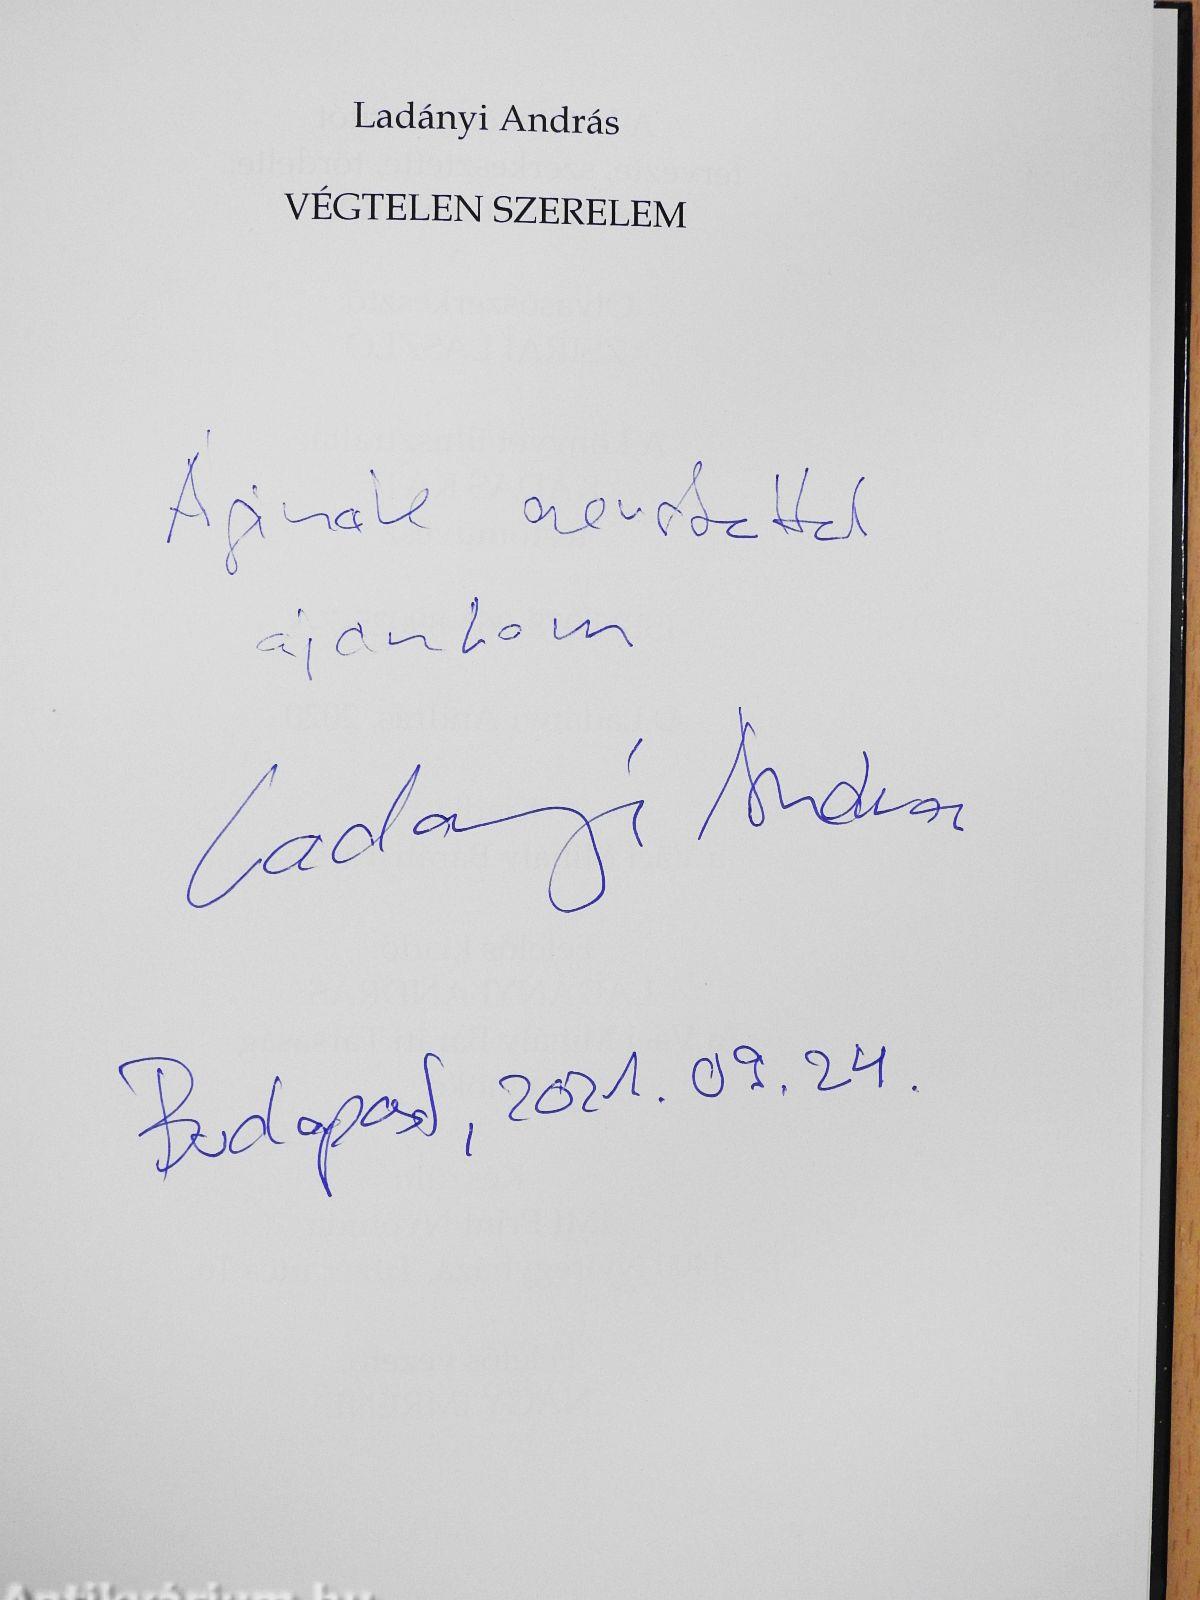 Ladányi András
VÉGTELEN SZERELEM
Áginak szeretettel
ajánlom
Ladányi András
Budapest, 2021. 09. 24.
Antikvárium.hu